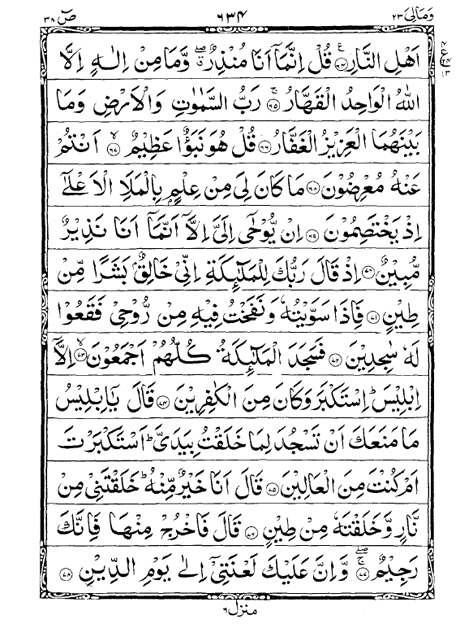 وَمَالِیَ ٢٣ ٦٣٤ صٓ ٣٨
اَهْلِ النَّارِ ﴿٦٤﴾ قُلْ اِنَّمَاۤ اَنَا مُنْذِرٌ ۖۗ وَّمَا مِنْ اِلٰهٍ اِلَّا
اللّٰهُ الْوَاحِدُ الْقَهَّارُ ﴿٦٥﴾ رَبُّ السَّمٰوٰتِ وَالْاَرْضِ وَمَا
بَيْنَهُمَا الْعَزِيْزُ الْغَفَّارُ ﴿٦٦﴾ قُلْ هُوَ نَبَؤٌا عَظِيْمٌ ﴿٦٧﴾ اَنْتُمْ
عَنْهُ مُعْرِضُوْنَ ﴿٦٨﴾ مَا كَانَ لِىَ مِنْ عِلْمٍۭ بِالْمَلَاِ الْاَعْلٰٓى
اِذْ يَخْتَصِمُوْنَ ﴿٦٩﴾ اِنْ يُّوْحٰۤى اِلَىَّ اِلَّاۤ اَنَّمَاۤ اَنَا نَذِيْرٌ
مُّبِيْنٌ ﴿٧٠﴾ اِذْ قَالَ رَبُّكَ لِلْمَلٰٓئِكَةِ اِنِّىْ خَالِقٌۢ بَشَرًا مِّنْ
طِيْنٍ ﴿٧١﴾ فَاِذَا سَوَّيْتُهٗ وَنَفَخْتُ فِيْهِ مِنْ رُّوْحِىْ فَقَعُوْا
لَهٗ سٰجِدِيْنَ ﴿٧٢﴾ فَسَجَدَ الْمَلٰٓئِكَةُ كُلُّهُمْ اَجْمَعُوْنَ ﴿٧٣﴾ اِلَّاۤ
اِبْلِيْسَ ؕ اِسْتَكْبَرَ وَكَانَ مِنَ الْكٰفِرِيْنَ ﴿٧٤﴾ قَالَ يٰۤاِبْلِيْسُ
مَا مَنَعَكَ اَنْ تَسْجُدَ لِمَا خَلَقْتُ بِيَدَىَّ ؕ اَسْتَكْبَرْتَ
اَمْ كُنْتَ مِنَ الْعَالِيْنَ ﴿٧٥﴾ قَالَ اَنَا خَيْرٌ مِّنْهُ ؕ خَلَقْتَنِىْ مِنْ
نَّارٍ وَّخَلَقْتَهٗ مِنْ طِيْنٍ ﴿٧٦﴾ قَالَ فَاخْرُجْ مِنْهَا فَاِنَّكَ
رَجِيْمٌ ۖۚ ﴿٧٧﴾ وَّاِنَّ عَلَيْكَ لَعْنَتِىْۤ اِلٰى يَوْمِ الدِّيْنِ ﴿٧٨﴾
منزل ٦